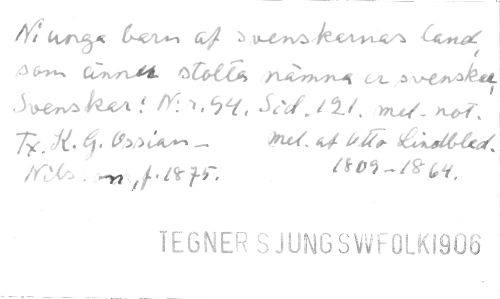 Ni unga barn af svenskarnas land,
som ännu stolta nämna er svenskar,
Svenskar! N:r. 94. Sid. 121. mel. not.
Tx. K. G. Ossian- mel. af Otto Lindblad.
Nils on, f. 1875. 1809-1864.
TEGNER SJUNG SWFOLK1906